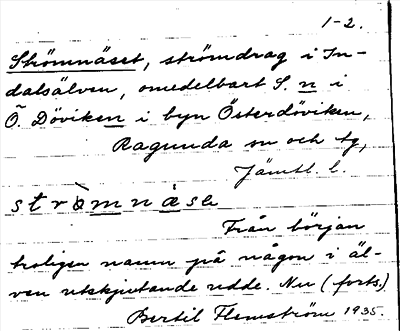 1-2.
Strömnäset, strömdrag i In-
dalsälven, omedelbart S. n i
Ö. Döviken i byn Österdöviken,
Ragunda sn och tg,
Jämtl. l.
strömnäse
Från början
troligen namn på någon i äl-
ven utskjutande udde. Nu (forts.)
Bertil Flemström 1935.